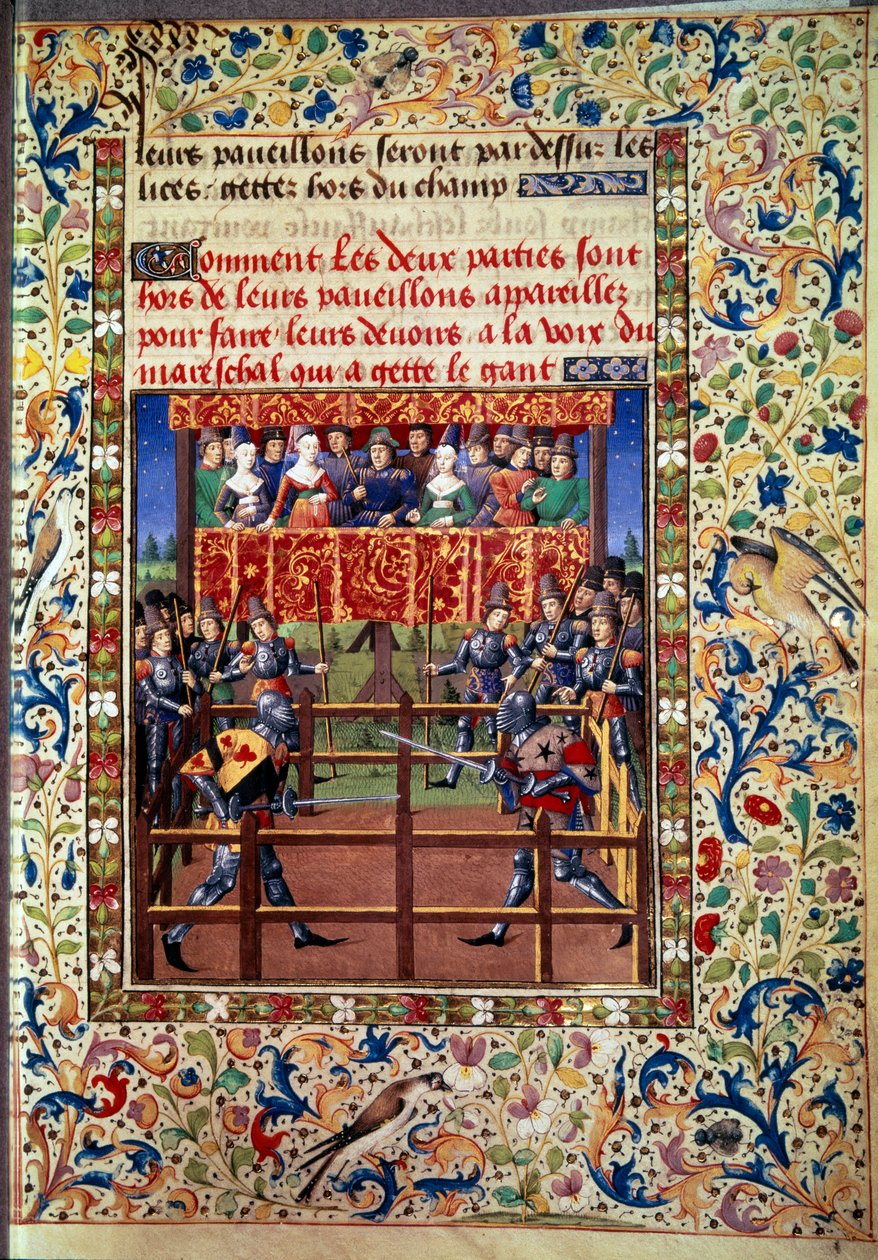 leurs paueillons seront par dessur les
lices gettez hors du champ
Comment Les deux parties sont
hors de leurs paueillons appareillez
pour faire leurs deuoirs a la voix du
mareschal qui a gette le gant